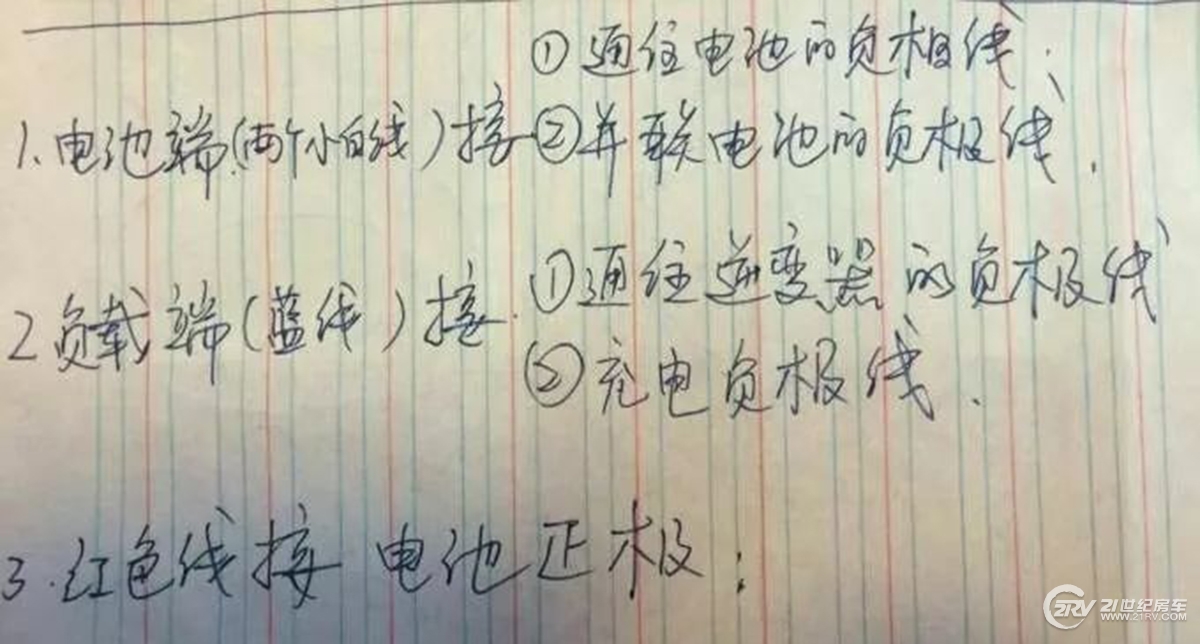 ①通往电池的负极线;
1.电池端(两个小白线)接②并联电池的负极线.
2负载端(蓝线)接.①通往逆变器的负极线
②充电负极线.
3.红色线接电池正极;
21RV 21世纪房车
WWW.21RV.COM